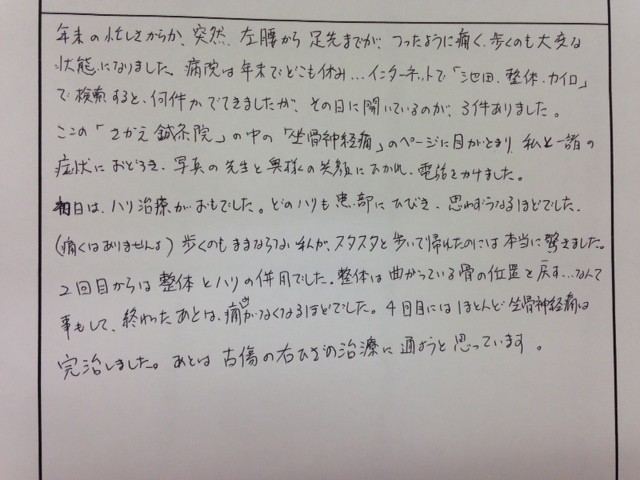 年末の忙しさからか、突然、左腰から足先までが、つったように痛く、歩くのも大変な
状態になりました。病院は年末でどこも休み…インターネットで「池田、整体、カイロ」
で検索すると、何件かでてきましたが、その日に開いているのが、3件ありました。
ここの「さかえ鍼灸院」の中の「坐骨神経痛」のページに目がとまり、私と一諸の
症状におどろき、写真の先生と奥様の笑顔にひかれ、電話をかけました。
初日は、ハリ治療がおもでした。どのハリも患部にひびき、思わずうなるほどでした。
(痛くはありませんよ)歩くのもままならない私が、スタスタと歩いて帰れたのには本当に驚きました。
2回目からは整体とハリの併用でした。整体は曲がっている骨の位置を戻す…なんて
事もして、終わったあとは、痛みがなくなるほどでした。4回目にはほとんど坐骨神経痛は
完治しました。あとは古傷の右ひざの治療に通おうと思っています。